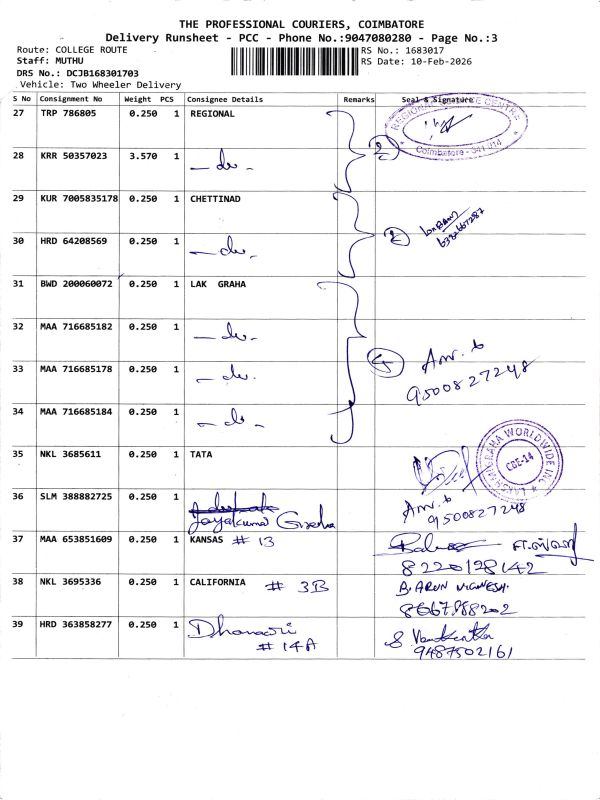 THE PROFESSIONAL COURIERS, COIMBATORE
Delivery Runsheet - PCC - Phone No.:9047080280 - Page No.:3
Route: COLLEGE ROUTE RS No.: 1683017
Staff: MUTHU RS Date: 10-Feb-2026
DRS No.: DCJB168301703
Vehicle: Two Wheeler Delivery
S No Consignment No Weight PCS Consignee Details Remarks Seal & Signature
27 TRP 786805 0.250 1 REGIONAL
Coimbatore - 641 014
28 KRR 50357023 3.570 1 — do -
29 KUR 7005835178 0.250 1 CHETTINAD
30 HRD 64208569 0.250 1 — do -
31 BWD 200060072 0.250 1 LAK GRAHA
32 MAA 716685182 0.250 1 — do -
33 MAA 716685178 0.250 1 — do -
9500827248
34 MAA 716685184 0.250 1 — do -
35 NKL 3685611 0.250 1 TATA
LAKSHMIGRAHA WORLDWIDE INC
CBE-14
36 SLM 388882725 0.250 1
9500827248
37 MAA 653851609 0.250 1 KANSAS # 13
8220128142
38 NKL 3695336 0.250 1 CALIFORNIA # 3B B. ARUN VIGNESH.
39 HRD 363858277 0.250 1
# 14A
9487502161